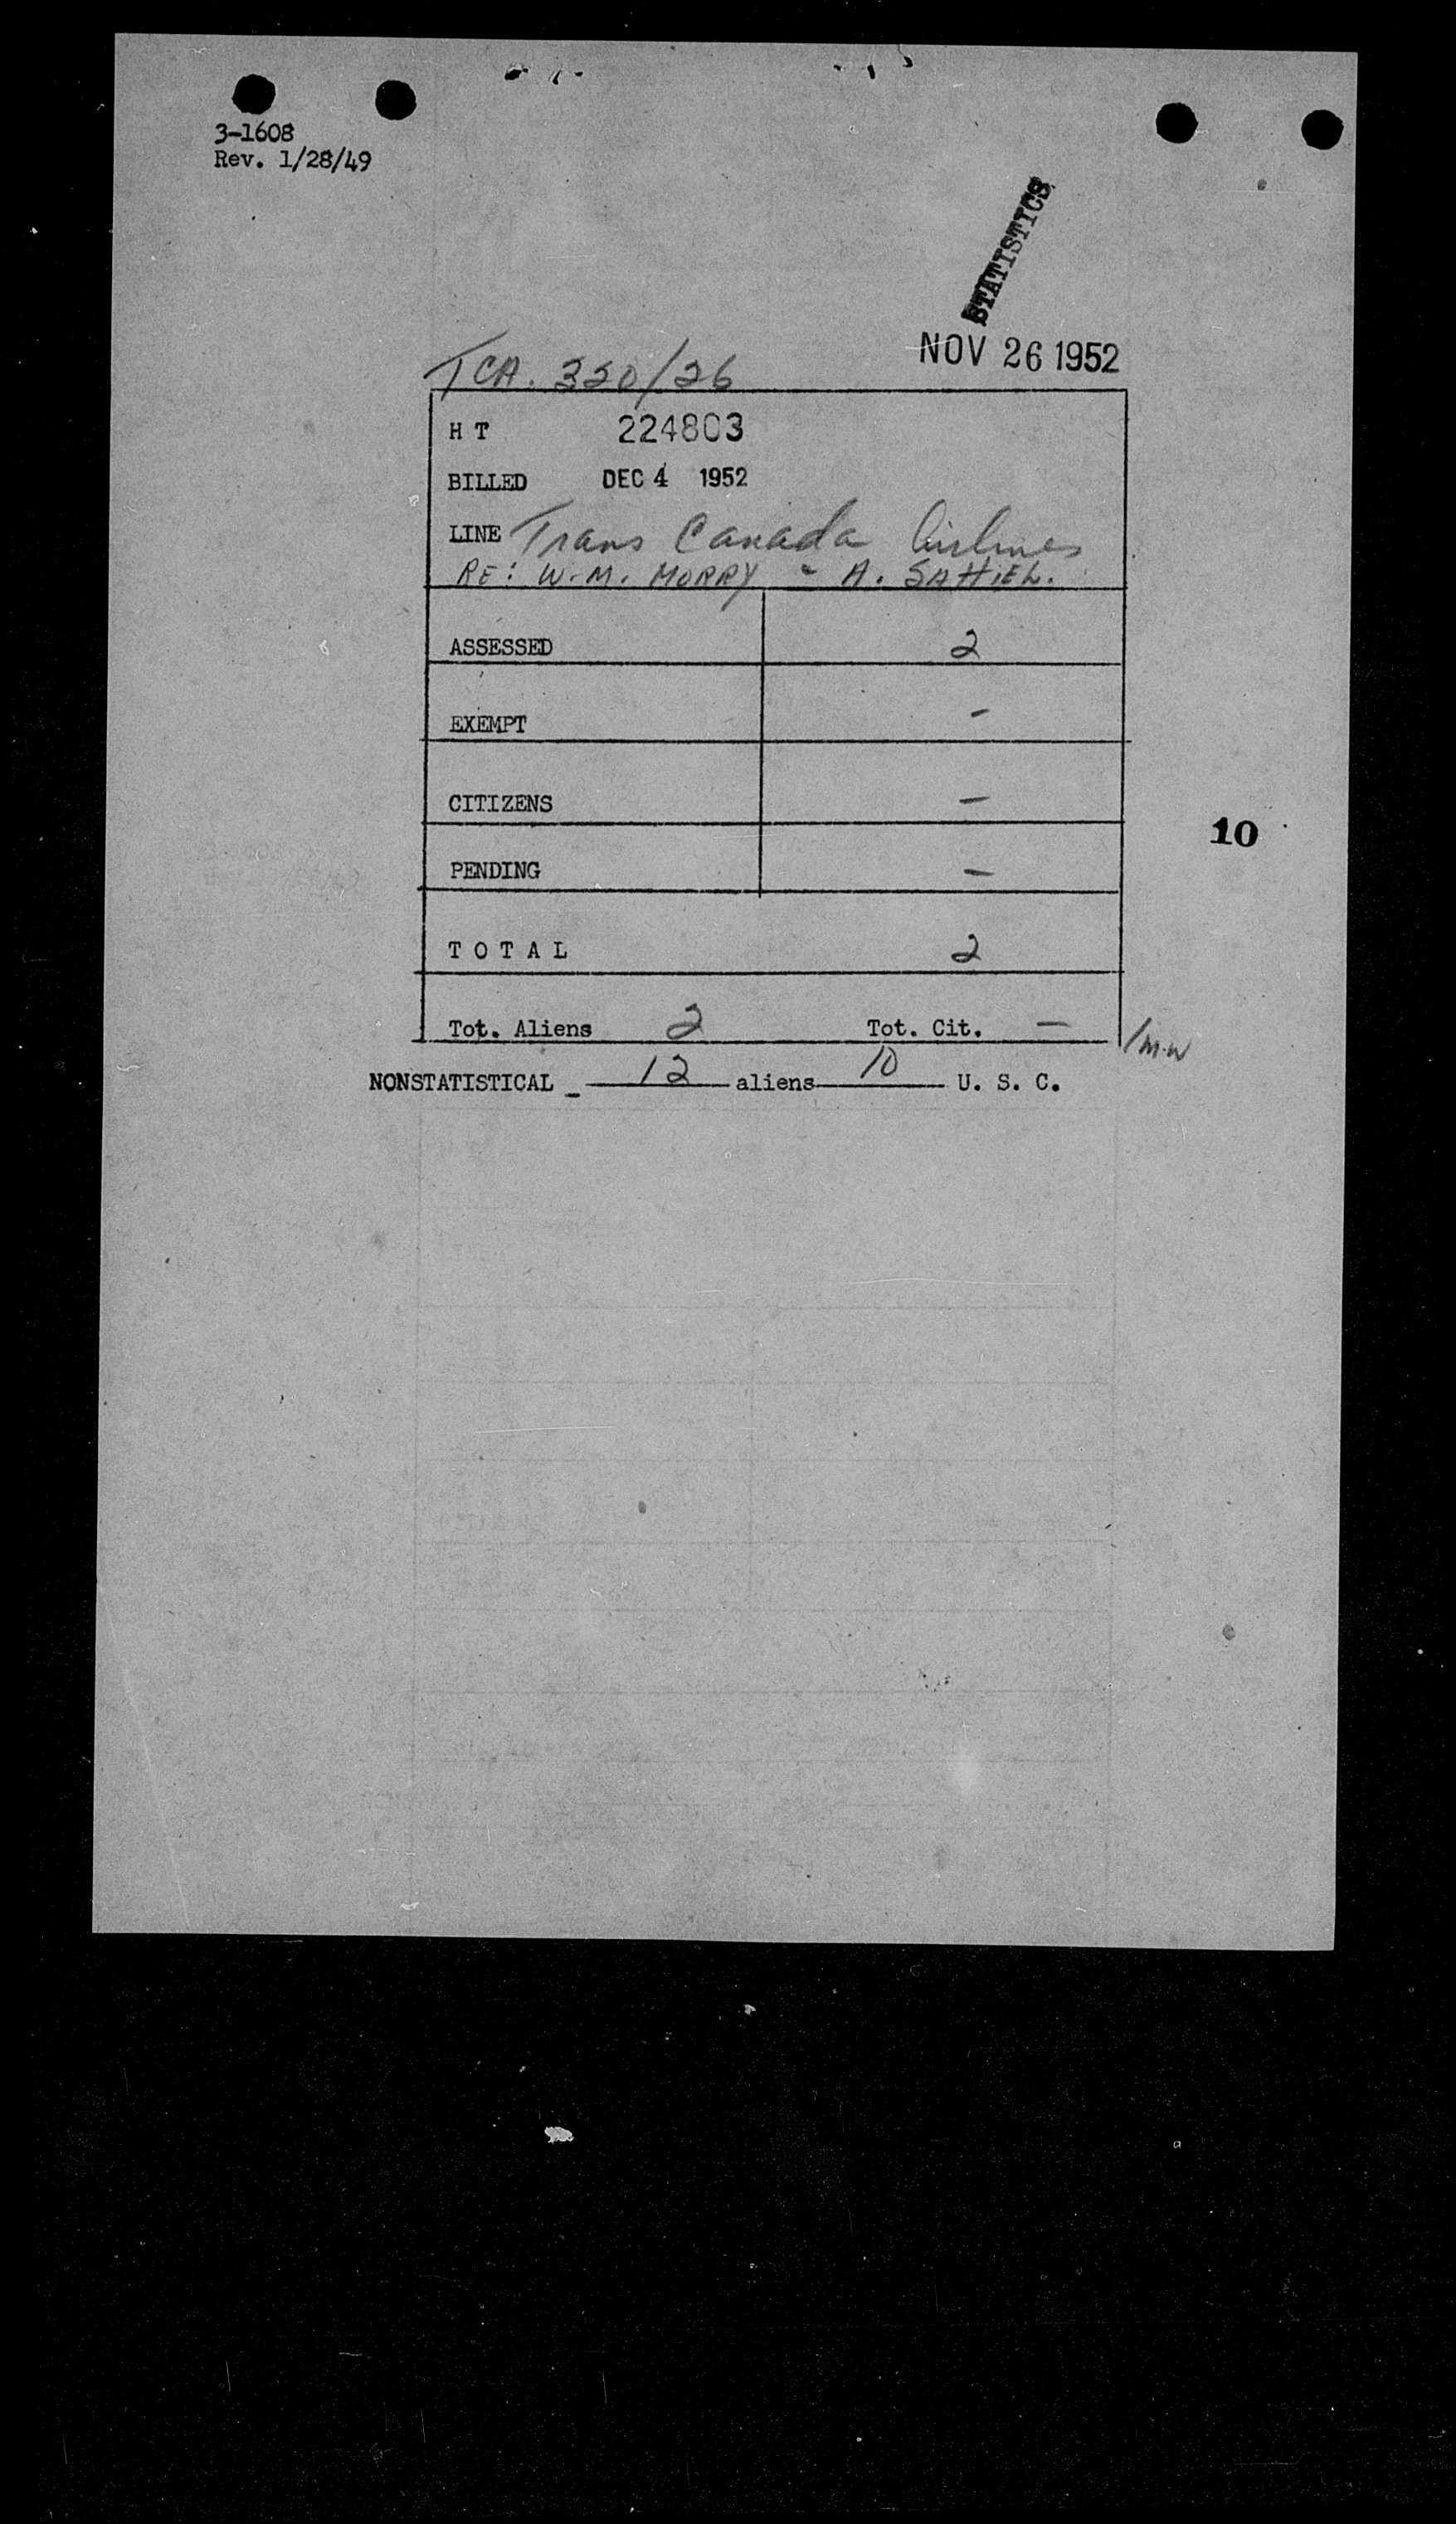 3-1608
Rev. 1/28/49
STATISTICS
NOV 26 1952
TCA. 320/26
H T 224803
BILLED DEC 4 1952
LINE Trans Canada Airlines
RE: W.M. MORRY - A. SAHIEL.
ASSESSED 2
EXEMPT -
CITIZENS -
10
PENDING -
T O T A L 2
Tot. Aliens 2 Tot. Cit. - /mw
NONSTATISTICAL - 12 aliens 10 U. S. C.